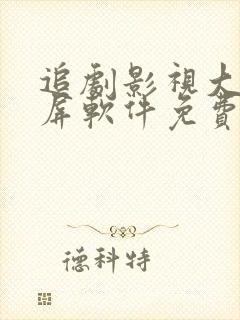 追劇影視大
屏軟件免費
德科特